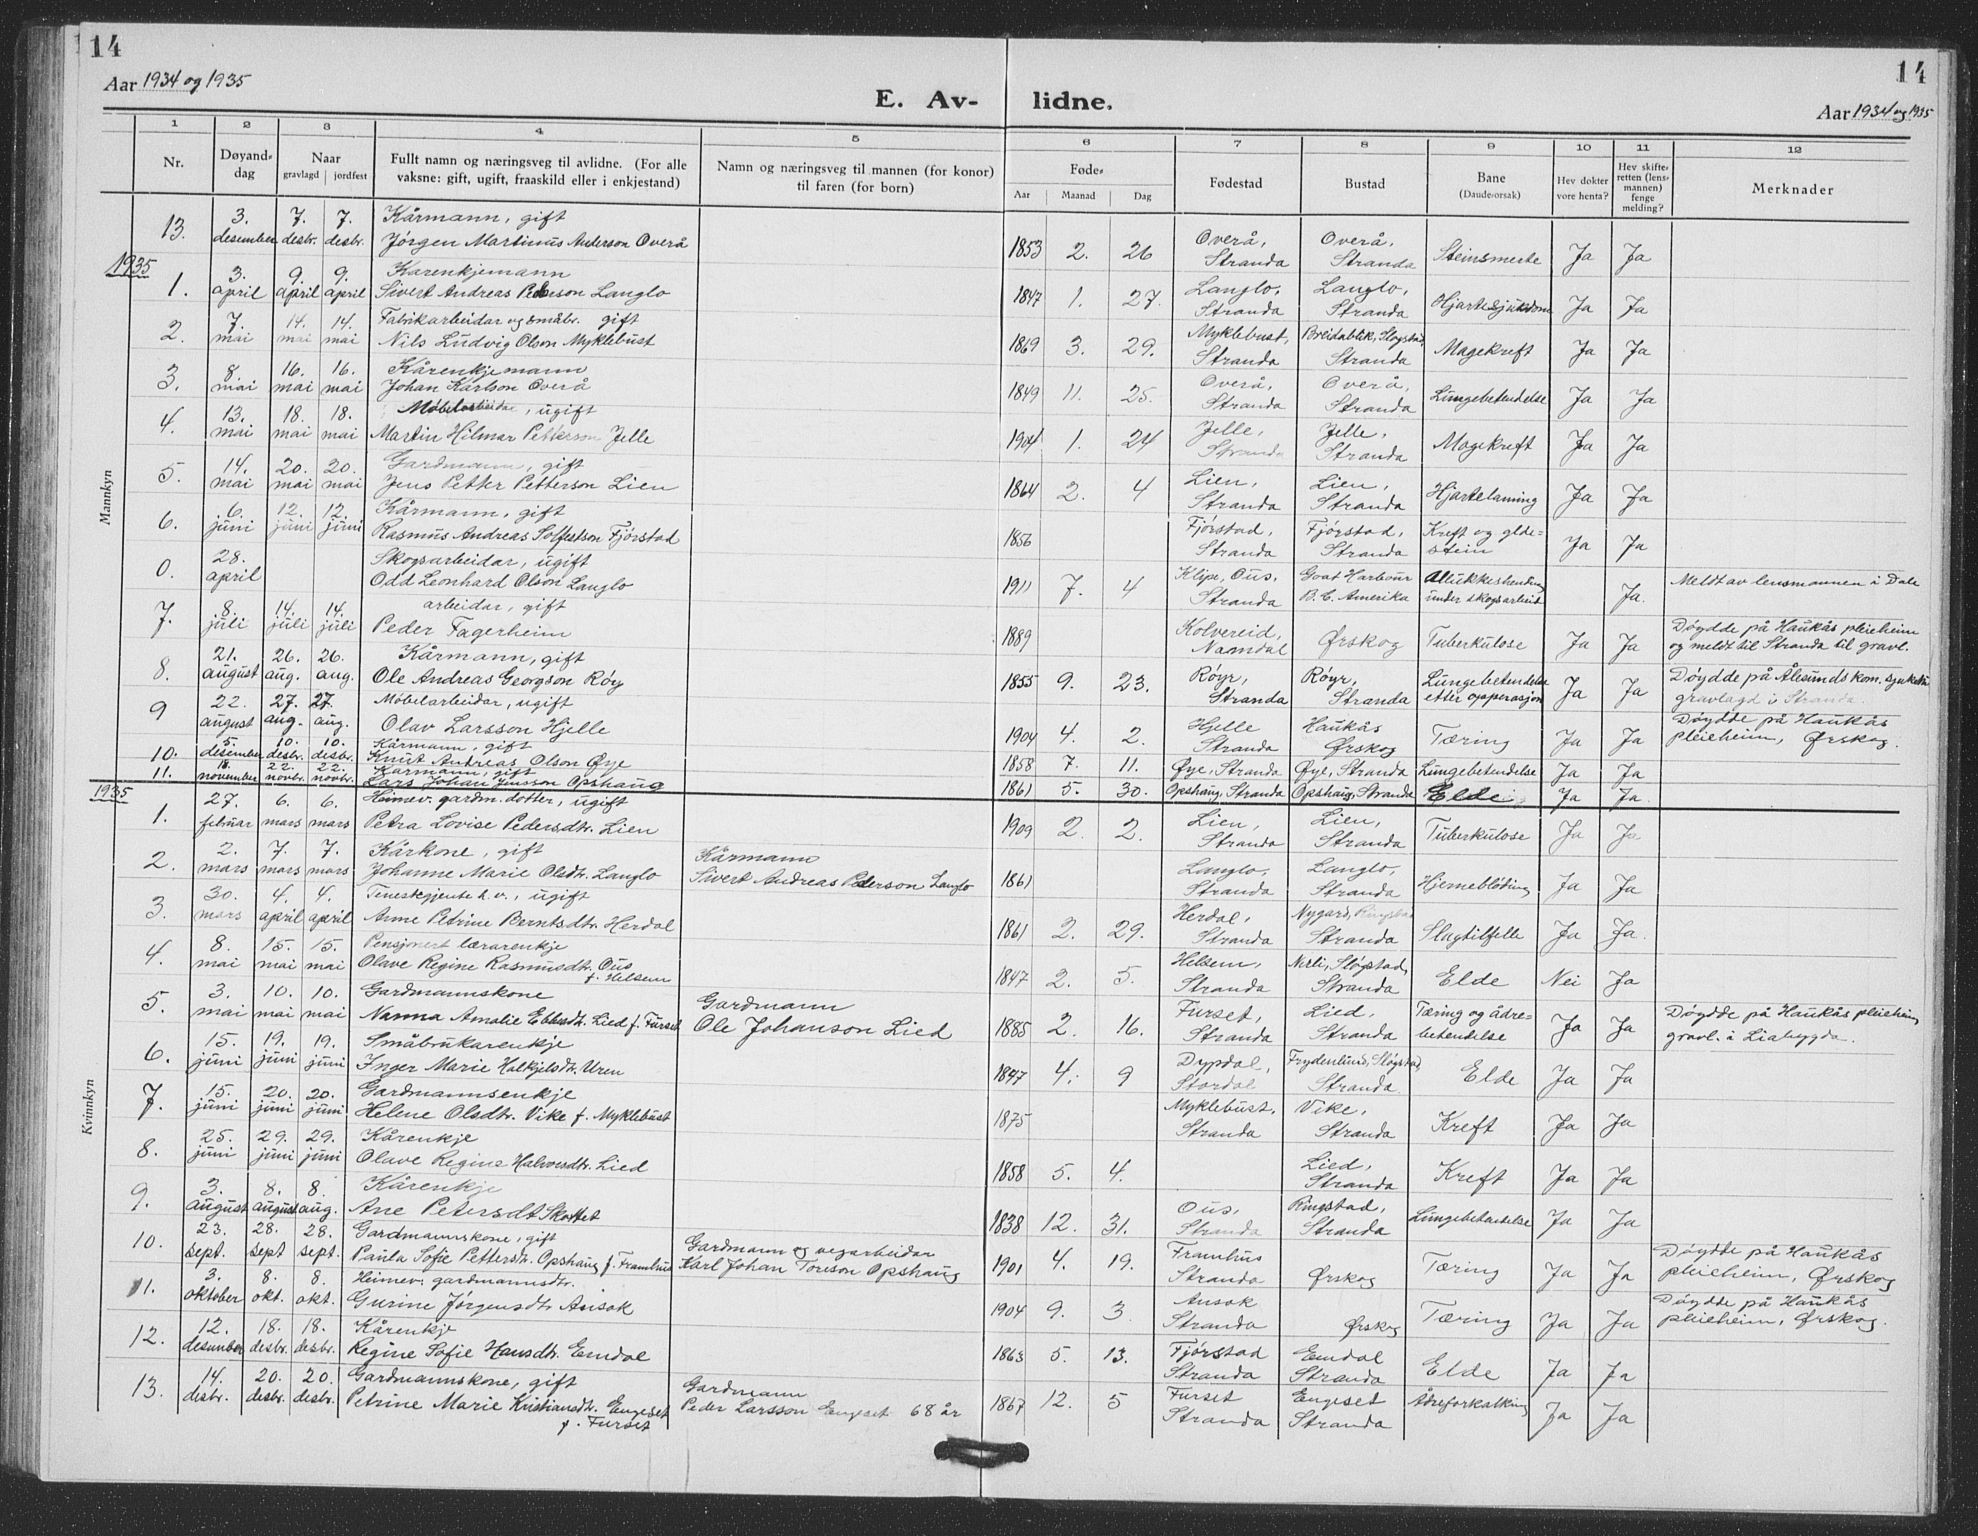 14
14
Aar 1934 og 1935
E. Av- lidne.
Aar 1934 og 1935
1 2 3 4 5 6 7 8 9 10 11 12
Nr. | Døyand-dag | Naar gravlagd jordfest | Fullt namn og næringsveg til avlidne. (For alle vaksne: gift, ugift, fraaskild eller i enkjestand) | Namn og næringsveg til mannen (for konor) til faren (for born) | Føde- Aar Maanad Dag | Fødestad | Bustad | Bane (Daude-orsak) | Hev dokter vore henta? | Hev skifte-retten (lens-mannen) fenge melding? | Merknader
Mannkyn
13. 3. desember 7. desbr. 7. desbr. Kårmann, gift Jørgen Martinus Anderson Overå 1853 2. 26 Overå, Stranda Overå, Stranda Steinsmerte Ja Ja
1935
1. 3. april 9. april 9. april Kårenkjemann Sivert Andreas Pederson Langlo 1847 1. 27. Langlo, Stranda Langlo, Stranda Hjartesjukdom Ja Ja
2. 7. mai 14. mai 14. mai Fabrikarbeidar og småbr. gift Nils Ludvig Olson Myklebust 1869 3. 29. Myklebust, Stranda Breidablik, Sløgstad, Stranda Magekreft Ja Ja
3. 8. mai 16. mai 16. mai Kårenkjemann Johan Karlson Overå 1849 11. 25. Overå, Stranda Overå, Stranda Lungebetendelse Ja Ja
4. 13. mai 18. mai 18. mai Møbelarbeidar, ugift Martin Hilmar Petterson Jelle 1904 1. 24 Jelle, Stranda Jelle, Stranda Magekreft Ja Ja
5. 14. mai 20. mai 20. mai Gardmann, gift Jens Petter Petterson Lien 1864 2. 4 Lien, Stranda Lien, Stranda Hjartelaming Ja Ja
6. 6. juni 12. juni 12. juni Kårmann, gift Rasmus Andreas Solfestson Fjørstad 1856 Fjørstad, Stranda Fjørstad, Stranda Kreft og gldestein Ja Ja
0. 28. april Skogsarbeidar, ugift Odd Leonhard Olson Langlo 1911 7. 4 Klipe, Ous, Stranda Goat Harbour B.C. Amerika Allukkeshending under skogsarbeid Ja. Meldt av lensmannen i Dale
7. 8. juli 14. juli 14. juli arbeidar, gift Peder Fagerheim 1889 Kolvereid, Namdal Ørskog Tuberkulose Ja Ja Døydde på Haukås pleieheim og meldt til Stranda til gravl.
8. 21. august 26. aug. 26. aug. Kårmann, gift Ole Andreas Georgson Røy 1855 9. 23. Røyr, Stranda Røyr, Stranda Lungebetendelse etter opperasjon Ja Ja Døydde på Ålesunds kom. gravlagd i Stranda
9 22. august 27. aug. 27. aug. Møbelarbeidar, ugift Olav Larsson Hjelle 1904 4. 2. Hjelle Stranda Haukås Ørskog Tæring Ja Ja Døydde på Haukås pleieheim, Ørskog.
10. 5. desember 10. desbr. 10. desbr. Kårmann, gift Knut Andreas Olson Øye 1858 7. 11. Øye, Stranda Øye, Stranda Lungebetendelse Ja Ja
11. 18. november 22. novbr. 22. novbr. Kårmann, gift Lars Johan Jensson Opshaug 1861 5. 30. Opshaug, Stranda Opshaug, Stranda Elde Ja Ja
1935
Kvinnkyn
1. 27. februar 6. mars 6. mars Heimev. gardm. dotter, ugift Petra Lovise Pedersdtr. Lien 1909 2 2. Lien, Stranda Lien, Stranda Tuberkulose Ja Ja
2. 2. mars 7. mars 7. mars Kårkone, gift Johanne Marie Olsdtr. Langlo Kårmann Sivert Andreas Pederson Langlo 1861 Langlo, Stranda Langlo, Stranda Hjerneblöding Ja Ja
3. 30. mars 4. april 4. april Tenestgjente h.v., ugift Anne Petrine Berntsdtr. Herdal 1861 2. 29. Herdal, Stranda Nygard, Ringstad Stranda Slagtilfelle Ja Ja.
4. 8. mai 15. mai 15. mai Pensjonert lærarenkje Olave Regine Rasmusdtr. Ous f. Helsem 1847 2. 5. Helsem, Stranda Nerli, Sløgstad, Stranda Elde Nei Ja
5. 3. mai 10. mai 10. mai Gardmannskone Nanna Amalie Ebbesdtr. Lied f. Furset Gardmann Ole Johanson Lied 1885 2 16. Furset, Stranda Lied, Stranda Tæring og ådre-betendelse Ja Ja Døydde på Haukås pleieheim gravl. i Liabygda.
6. 15. juni 19. juni 19. juni Småbrukarenkje Inger Marie Halkjelsdtr. Uren 1847 4. 9 Dypdal, Stordal Frydenlund, Sløgstad, Stranda Elde Ja Ja
7. 15. juni 20. juni 20. juni Gardmannsenkje Helene Olsdtr. Vike f. Myklebust 1875 Myklebust, Stranda Vike, Stranda Kreft Ja Ja
8. 25. juni 29. juni 29. juni Kårenkje Olave Regine Halvorsdtr. Lied 1858 5. 4. Lied, Stranda Kreft Ja Ja
9. 3. august 8. august 8. aug. Kårenkje Ane Petersdt Skottet 1838 12. 31. Ous, Stranda Ringstad, Stranda Lungebetendelse Ja Ja
10. 23. sept. 28. sept 28. sept. Gardmannskone, gift Paula Sofie Pettersdtr. Opshaug f. Framhus Gardmann og vegarbeidar Karl Johan Toreson Opshaug 1901 4. 19. Framhus Stranda Ørskog Tæring Ja Ja Døydde på Haukås pleieheim, Ørskog
11. 3. oktober 8. okt. 8. okt. Heimev. gardmannsdtr. Gurine Jørgensdtr. Ansok 1904 9. 3 Ansok Stranda Ørskog Tæring Ja Ja Døydde på Haukås pleieheim, Ørskog.
12. 12. desember 18. desbr. 18. desbr. Kårenkje Regine Sofie Hansdtr. Emdal 1863 5. 13. Fjørstad Stranda Emdal Stranda Elde Ja Ja
13. 14. desbr. 20. desbr. 20. desbr. Gardmannskone, gift Petrine Marie Kristiansdtr. Engeset f. Furset Gardmann Peder Larsson Engeset 68 år 1867 12. 5 Furset Stranda Engeset Stranda Ådreforkalkning Ja Ja